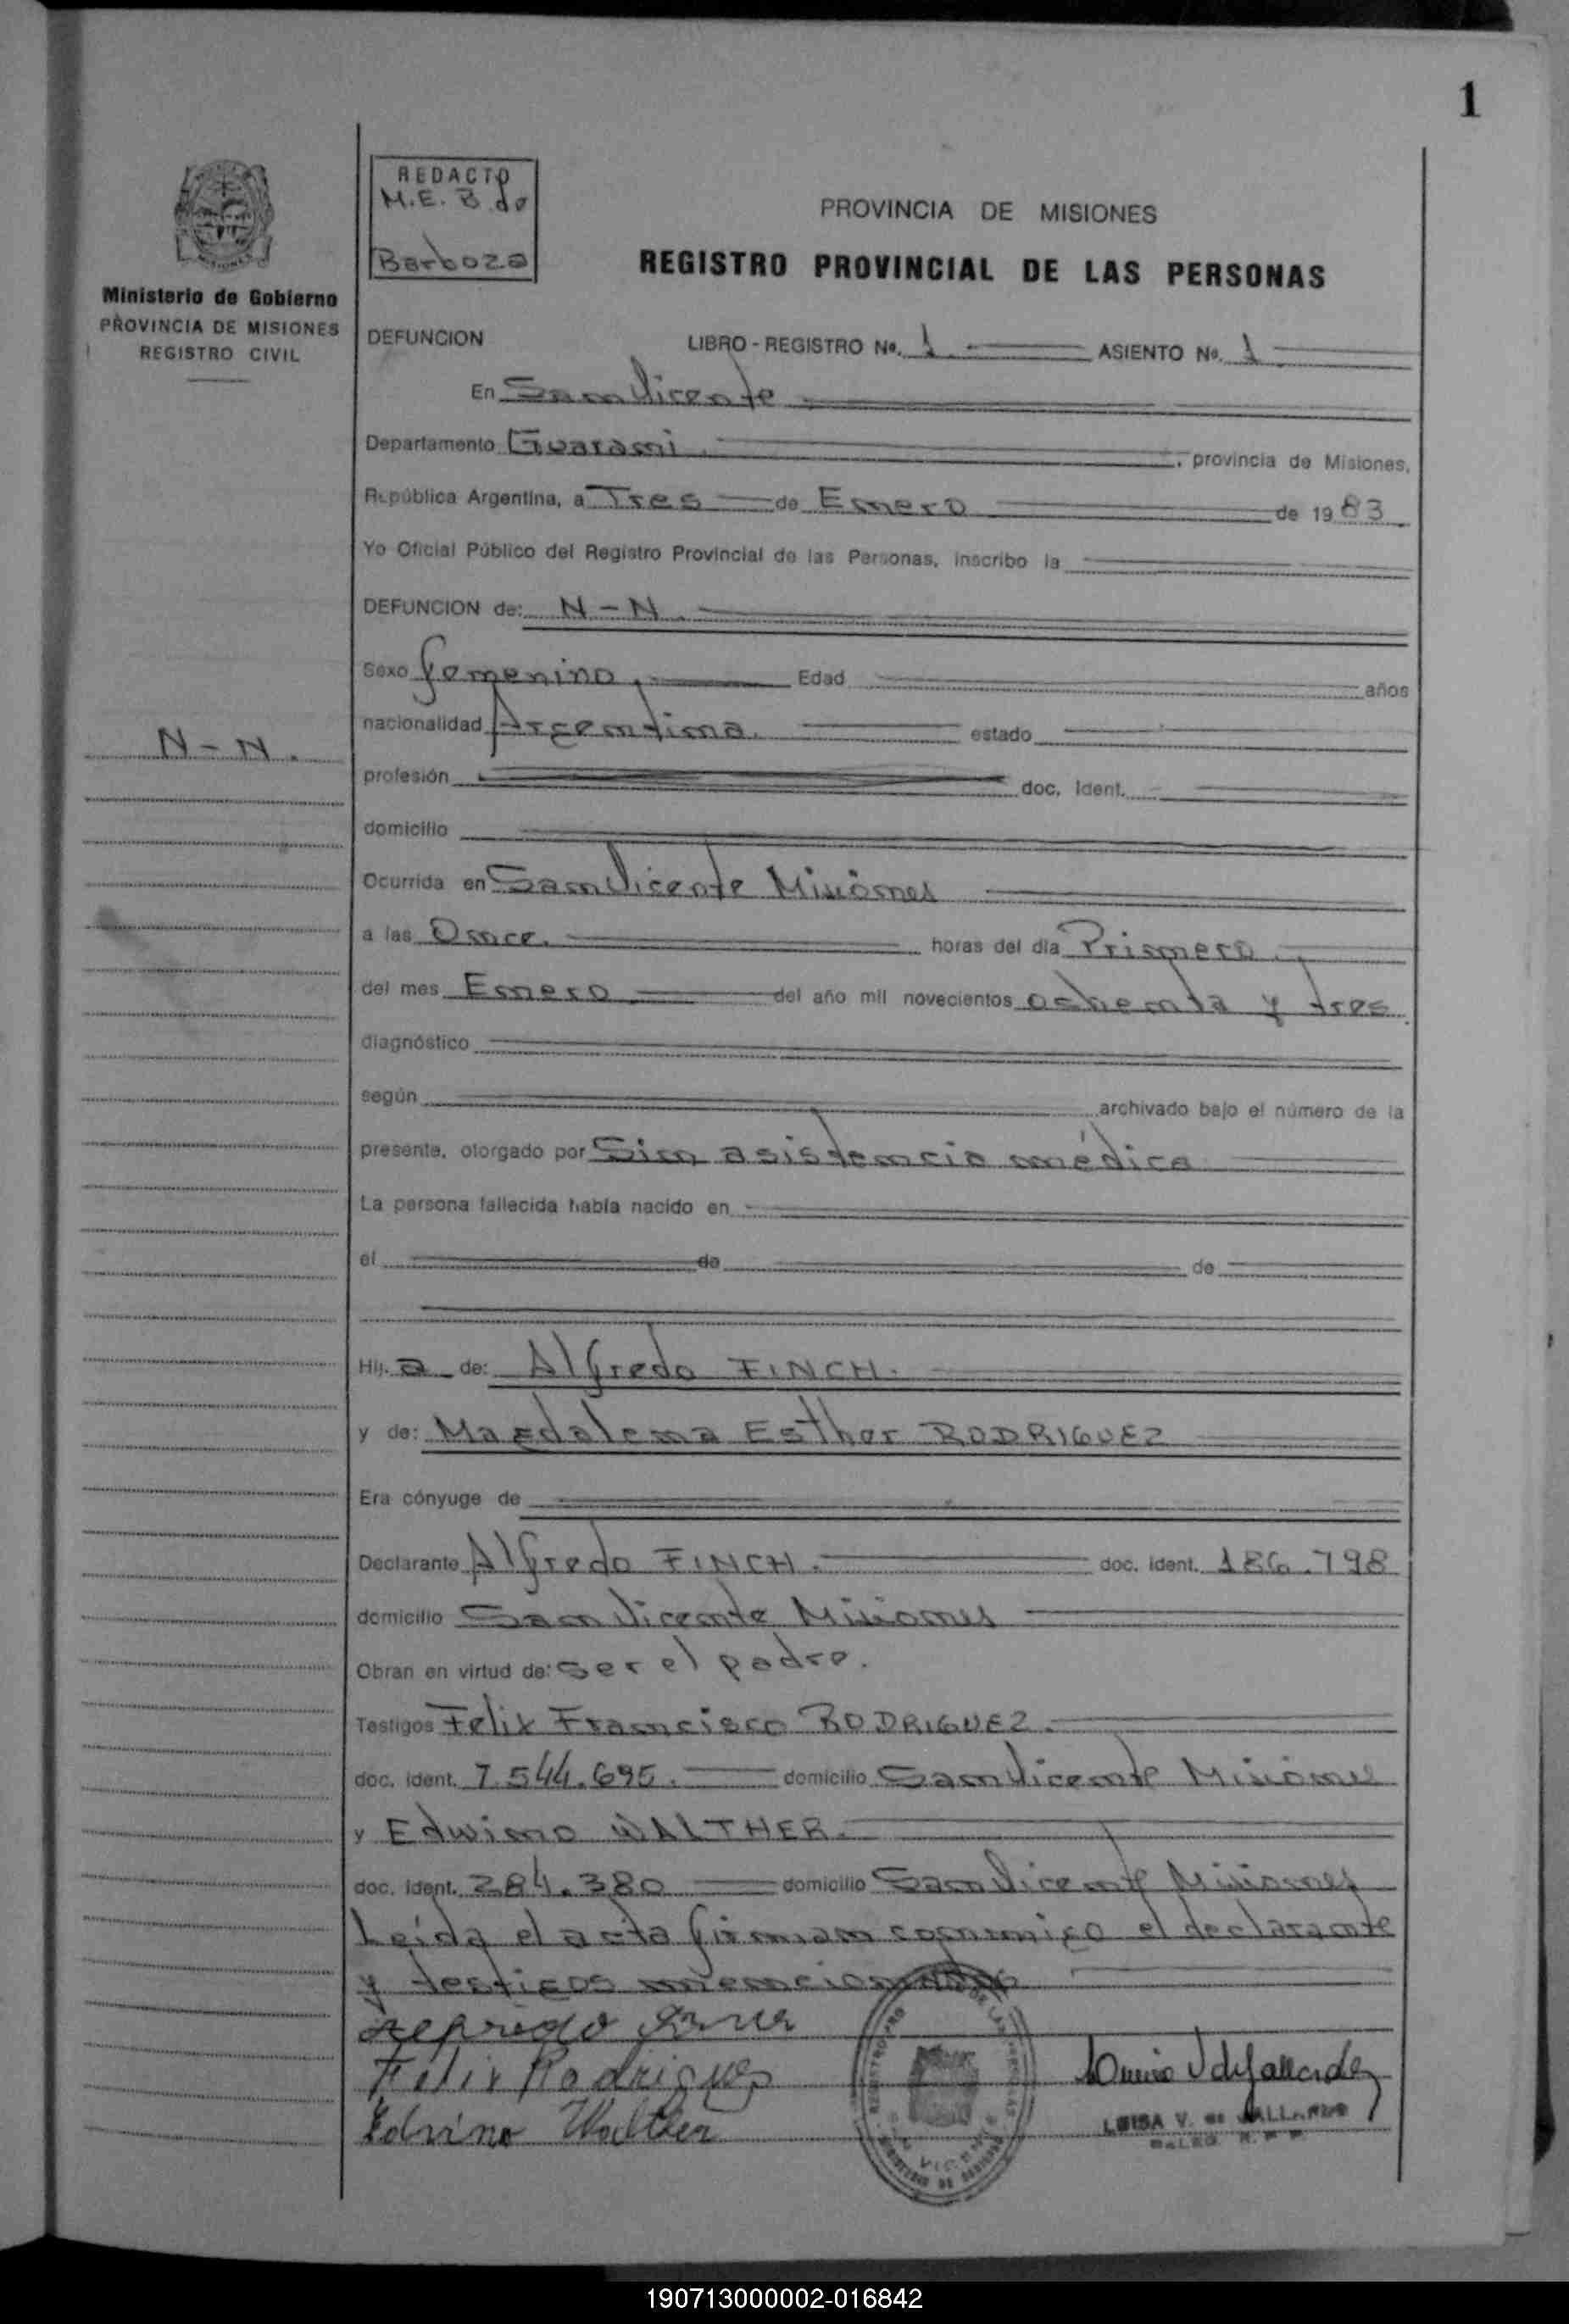 1
REDACTO
M.E.B. de
Barboza
Ministerio de Gobierno
PROVINCIA DE MISIONES
REGISTRO CIVIL
PROVINCIA DE MISIONES
REGISTRO PROVINCIAL DE LAS PERSONAS
DEFUNCION LIBRO - REGISTRO No. 1 ASIENTO No. 1
En San Vicente
Departamento Guarani. , provincia de Misiones,
República Argentina, a Tres de Enero de 1983
Yo Oficial Público del Registro Provincial de las Personas, inscribo la
DEFUNCION de: N-N.
Sexo femenino. Edad años
nacionalidad Argentina. estado
N-N.
profesión doc. ident.
domicilio
Ocurrida en San Vicente Misiones
a las Once. horas del día Primero.
del mes Enero del año mil novecientos ochenta y tres
diagnóstico
según archivado bajo el número de la
presente, otorgado por Sin asistencia médica
La persona fallecida había nacido en
el de de
Hij a de: Alfredo FINCH.
y de: Magdalena Esther RODRIGUEZ
Era cónyuge de
Declarante Alfredo FINCH. doc. ident. 186.798
domicilio San Vicente Misiones
Obran en virtud de: ser el padre.
Testigos Felix Francisco RODRIGUEZ.
doc. ident. 7.544.695. domicilio San Vicente Misiones
y Edwino WALTHER.
doc. ident. 284.380 domicilio San Vicente Misiones
Leida el acta firman conmigo el declarante
y testigos mencionados
Felix Rodriguez
Edvino Walther
LUISA V. de GALLARDO
190713000002-016842